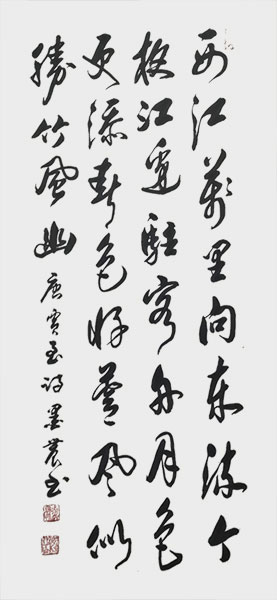 西江萬里向東流今
夜江邊駐客舟月色
更添春色好蘆風似
勝竹風幽 唐賈至詩墨農書